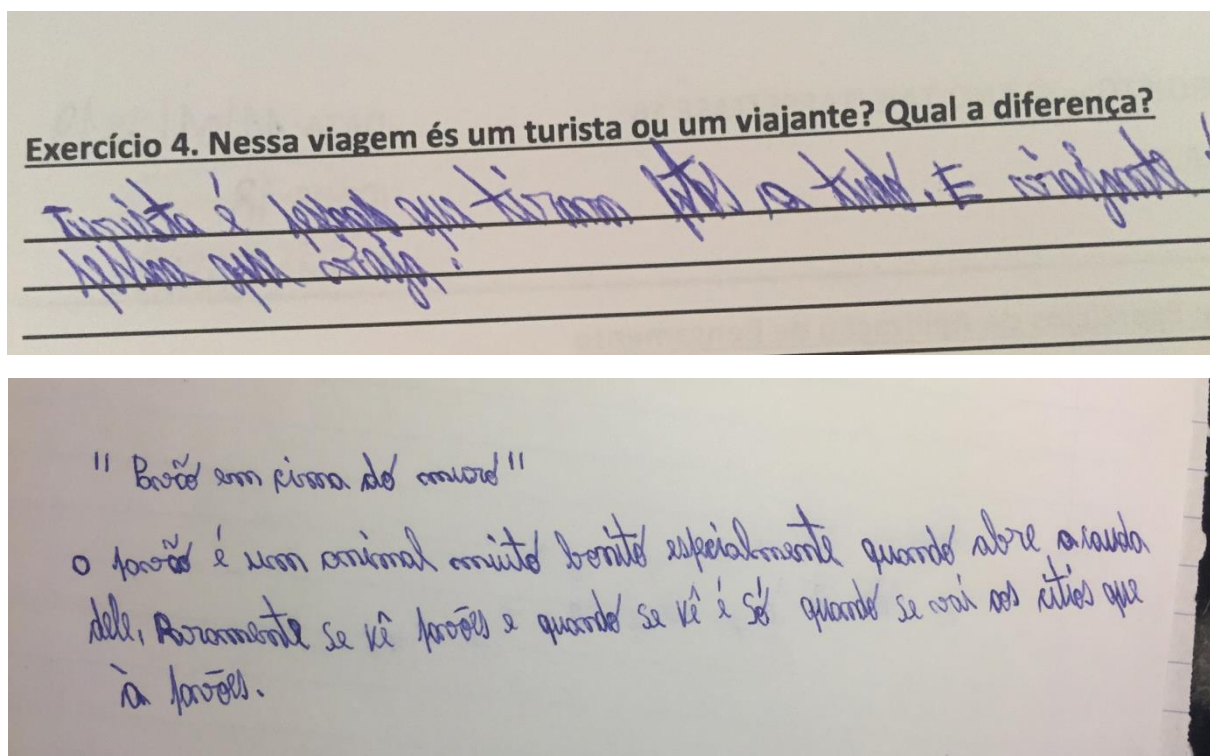 Exercício 4. Nessa viagem és um turista ou um viajante? Qual a diferença?
Turista é pessoas que tiram fotos a tudo. E viajante
pessoa que viaja.
"Pavão em cima do muro"
o pavão é um animal muito bonito especialmente quando abre a cauda
dele, Raramente se vê pavões e quando se vê é só quando se vai aos sitios que
à pavões.